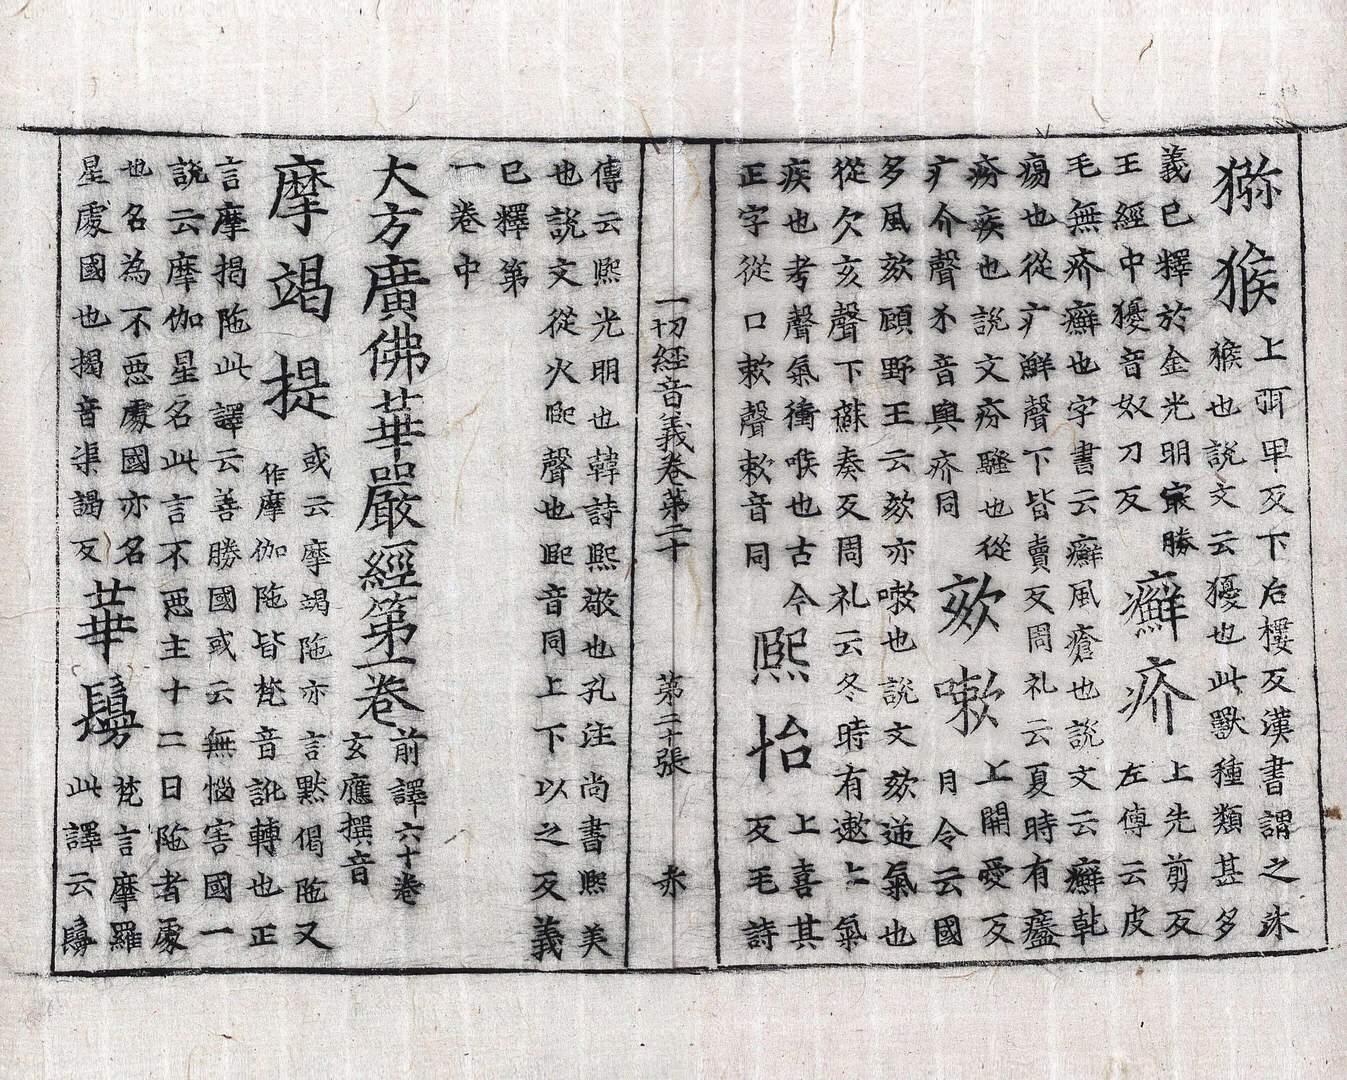 獼猴
上弭卑反下后樓反漢書謂之沐
猴也說文云玃也此獸種類甚多
義已釋於金光明最勝
王經中玃音奴刀反
癬疥
上先剪反
左傳云皮
毛無疥癬也字書云癬風瘡也說文云癬乾
瘍也從疒鮮聲下皆賣反周礼云夏時有
疥疾也說文疥騷也從
疒介聲亦音與疥同
欬嗽
上開愛反
月令云國
多風欬顧野王云欬亦嗽也說文欬逆氣也
從欠亥聲下蘇奏反周礼云冬時有遬上氣
疾也考聲氣衝喉也古今
正字從口欶聲欶音同
熙怡
上喜其
反毛詩
一切經音義卷第二十 第二十張
傳云熙光明也韓詩熙敬也孔注尚書熙美
也說文從火巸聲也巸音同上下以之反義
已釋第
一卷中
大方廣佛華嚴經第一卷
前譯六十卷
玄應撰音
摩竭提
或云摩竭陁亦言黙偈陁又
作摩伽陁皆梵音訛轉也正
言摩揭陁此譯云善勝國或云無惱害國一
說云摩伽星名此言不惡主十二日陁者處
也名為不惡處國亦名
星處國也揭音渠謁反
華鬘
梵言摩羅
此譯云鬘